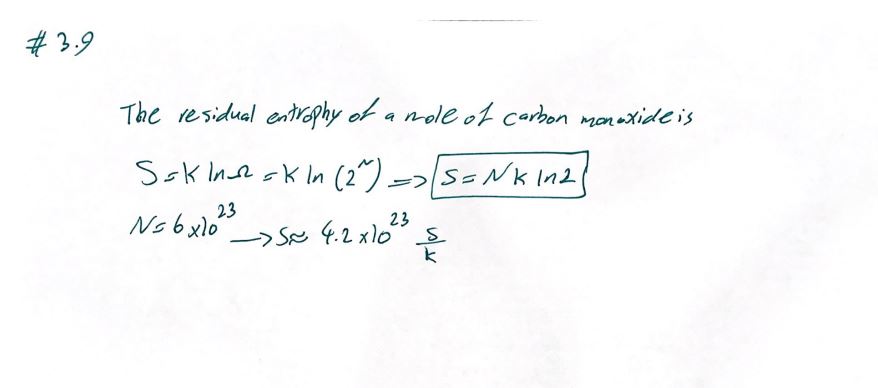 # 3.9
The residual entrophy of a mole of carbon monoxide is
S = k ln Ω = k ln (2^N) => S = N k ln2
N = 6 x 10^23 → S ≈ 4.2 x 10^23 S/k